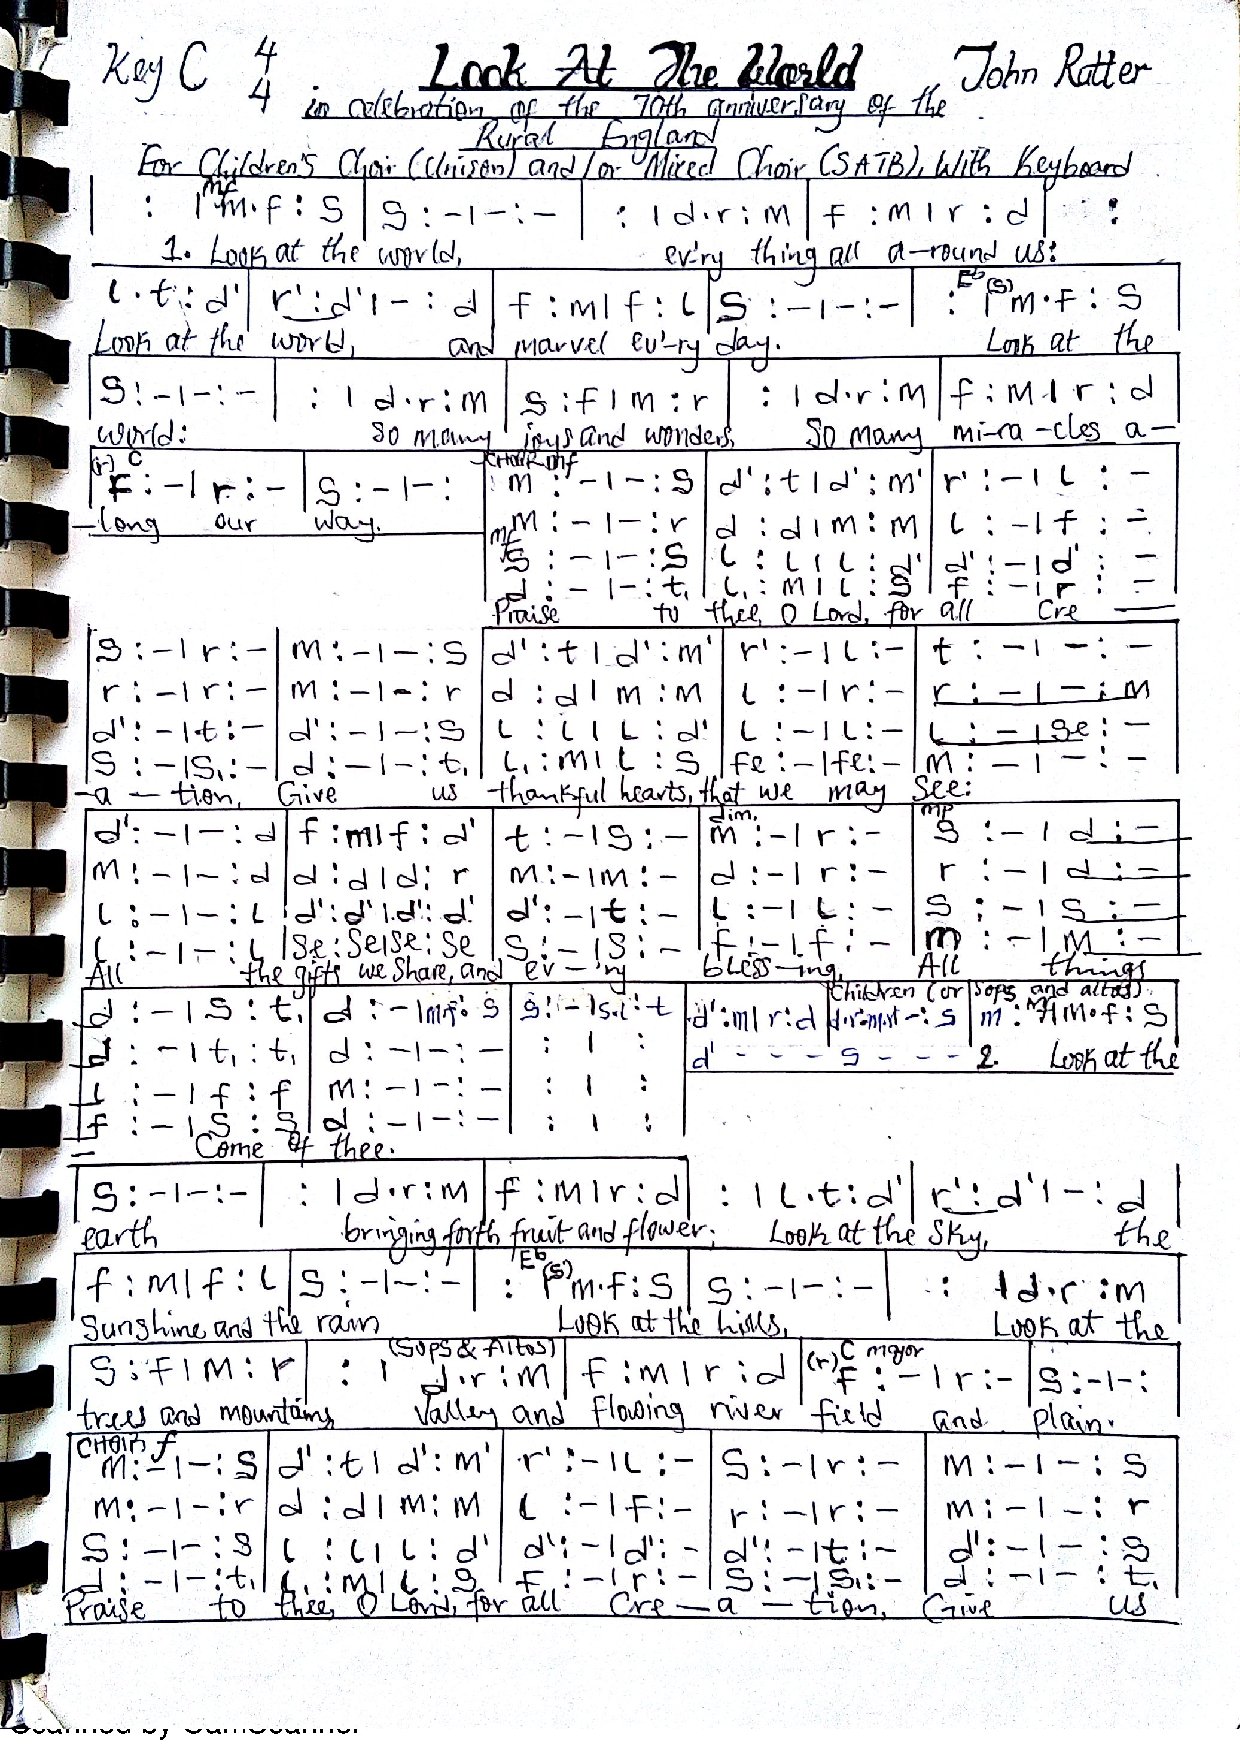 Key C 4/4 Look At The World John Rutter
in celebration of the 70th anniversary of the
Rural England
For Children's Choir (Unison) and/or Mixed Choir (SATB), With Keyboard
: | m.f : s | s : - | - : - | : | d.r : m | f : m | r : d | : :
1. Look at the world, ev'ry thing all a-round us:
l.t : d' | r' : d' | - : d | f : m | f : l | s : - | - : - | : Eb (s) | m.f : s
Look at the world, and marvel ev'-ry day. Look at the
s : - | - : - | : | d.r : m | s : f | m : r | : | d.r : m | f : m | r : d
world: So many joys and wonders, So many mi-ra-cles a-
(r) C f : - | r : - | s : - | - :
-long our way.
CHOIR mf
m : - | - : s | d' : t | d' : m' | r' : - | l : -
m : - | - : r | d : d | m : m | l : - | f : -
mf
s : - | - : s | l : l | l : d' | d' : - | d' : -
d : - | - : t, | l, : m | l : s | f : - | r : -
Praise to thee, O Lord, for all Cre
s : - | r : - | m : - | - : s | d' : t | d' : m' | r' : - | l : - | t : - | - : -
r : - | r : - | m : - | - : r | d : d | m : m | l : - | r : - | r : - | - : m
d' : - | t : - | d' : - | - : s | l : l | l : d' | l : - | l : - | l : - | se : -
s : - | s, : - | d : - | - : t, | l, : m | l : s | fe : - | fe : - | m : - | - : -
-a - tion, Give us thankful hearts, that we may see:
dim. mp
d' : - | - : d | f : m | f : d' | t : - | s : - | m : - | r : - | s : - | d : -
m : - | - : d | d : d | d : r | m : - | m : - | d : - | r : - | r : - | d : -
l : - | - : l | d' : d' | d' : d' | d' : - | t : - | l : - | l : - | s : - | s : -
l : - | - : l | se : se | se : se | s : - | s : - | f : - | f : - | m : - | m : -
All the gifts we share, and ev-'ry bless-ing, All things
Children (or Sops and altos)
d : - | s : t, | d : - | m.f : s | s : - | s.l : t | d' : m | r : d | d.r.m.f - : s | m : mf | m.f : s
d : - | t, : t, | d : - | - : - | : | : | d' - - - s - - - 2. Look at the
l : - | f : f | m : - | - : - | : | :
f : - | s : s | d : - | - : - | : | :
Come of thee.
s : - | - : - | : | d.r : m | f : m | r : d | : | l.t : d' | r' : d' | - : d |
earth bringing forth fruit and flower; Look at the sky, the
f : m | f : l | s : - | - : - | : Eb (s) | m.f : s | s : - | - : - | : | d.r : m
Sunshine and the rain Look at the hills, Look at the
s : f | m : r | : | (Sops & Altos) d.r : m | f : m | r : d | (r) C major f : - | r : - | s : - | - :
trees and mountains, Valley and flowing river field and plain.
CHOIR f
m : - | - : s | d' : t | d' : m' | r' : - | l : - | s : - | r : - | m : - | - : s
m : - | - : r | d : d | m : m | l : - | f : - | r : - | r : - | m : - | - : r
s : - | - : s | l : l | l : d' | d' : - | d' : - | d' : - | t : - | d' : - | - : s
d : - | - : t, | l, : m | l : s | f : - | r : - | s : - | s, : - | d : - | - : t,
Praise to thee, O Lord, for all Cre-a-tion, Give us
Scanned by CamScanner